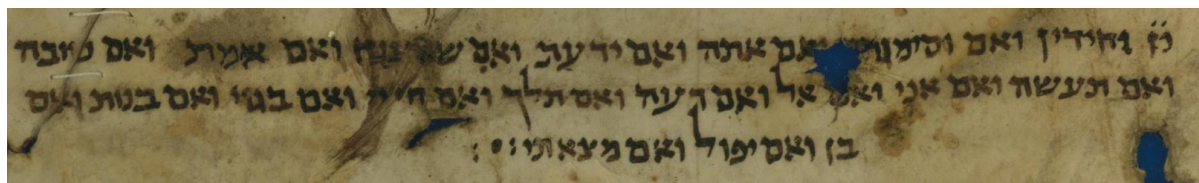 נ̈ז̈ יחידין ואם וסימנהון ואם אתה ואם ידעת ואם ואם אמת ואם טובה
ואם תעשה ואם אני ואם אל ואם רעה ואם תלך ואם חיה ואם בגוי ואם בנות ואם
בן ואם יפול ואם מצאתי